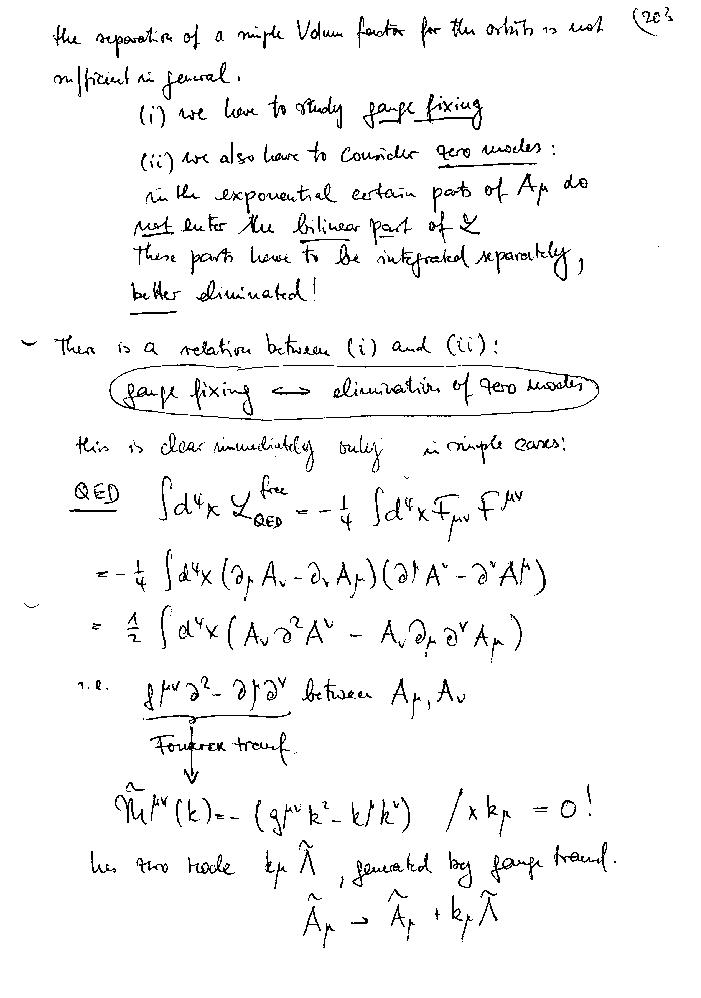 (203
the separation of a simple Volum factor for the orbits is not
sufficient in general.
(i) we have to study gauge fixing
(ii) we also have to consider zero modes:
in the exponential certain parts of Aμ do
not enter the bilinear part of ℒ
These parts have to be integrated separately,
better eliminated!
There is a relation between (i) and (ii):
gauge fixing ↔ elimination of zero modes
this is clear immediately only in simple cases:
QED ∫d⁴x ℒ_QED^free = -1/4 ∫d⁴x F_μν F^μν
= -1/4 ∫d⁴x (∂_μ A_ν - ∂_ν A_μ)(∂^μ A^ν - ∂^ν A^μ)
= 1/2 ∫d⁴x (A_ν ∂² A^ν - A_ν ∂_μ ∂^ν A_μ)
i.e. g^μν ∂² - ∂^μ ∂^ν between A_μ, A_ν
Fourier transf.
M̃^μν (k) = - (g^μν k² - k^μ k^ν) / × k_μ = 0!
has zero mode k_μ Λ̃, generated by gauge transf.
Ã_μ → Ã_μ + k_μ Λ̃